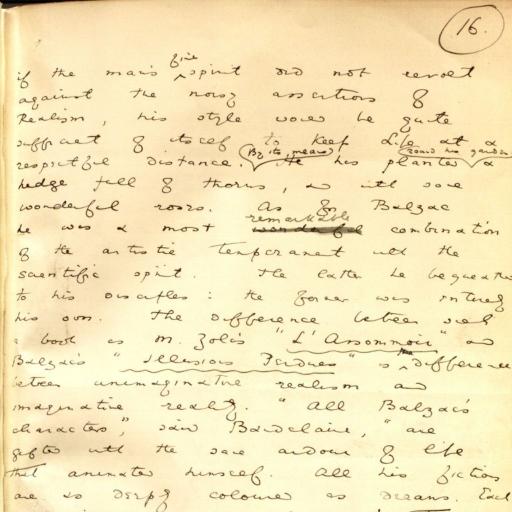 16.
if the man's fine spirit did not revolt
against the noisy assertions of
Realism, his style would be quite
sufficient of itself to keep Life at a
respectful distance. By its means He has planted round his garden a
hedge full of thorns, and with some
wonderful roses. As for Balzac
he was a most wonderful remarkable combination
of the artistic temperament with the
scientific spirit. The latter he bequeathed
to his disciples: the former was entirely
his own. The difference between such
a book as M. Zola's "L'Assommoir" and
Balzac's "Illusions Perdues" is the difference
between unimaginative realism and
imaginative reality. "All Balzac's
characters," said Baudelaire, "are
gifted with the same ardour of life
that animated himself. All his fictions
are as deeply coloured as dreams. Each